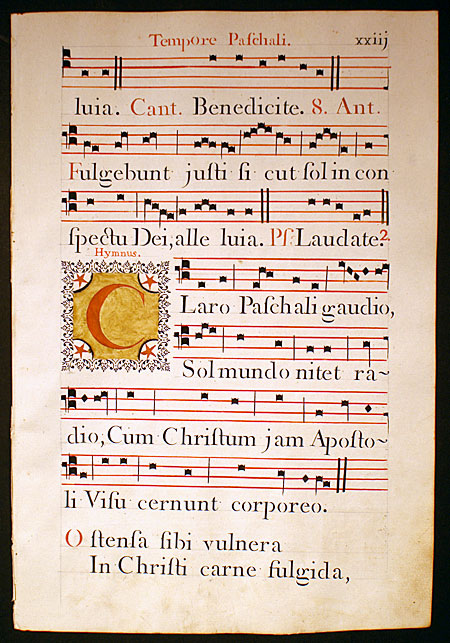 Tempore Paſchali. xxiij
luia. Cant. Benedicite. 8. Ant.
Fulgebunt juſti ſi cut ſol in con
ſpectu Dei, alle luia. Pſ. Laudate. 2.
Hymnus.
CLaro Paſchali gaudio,
Sol mundo nitet ra~
dio, Cum Chriſtum jam Apoſto~
li Viſu cernunt corporeo.
O ſtenſa ſibi vulnera
In Chriſti carne fulgida,